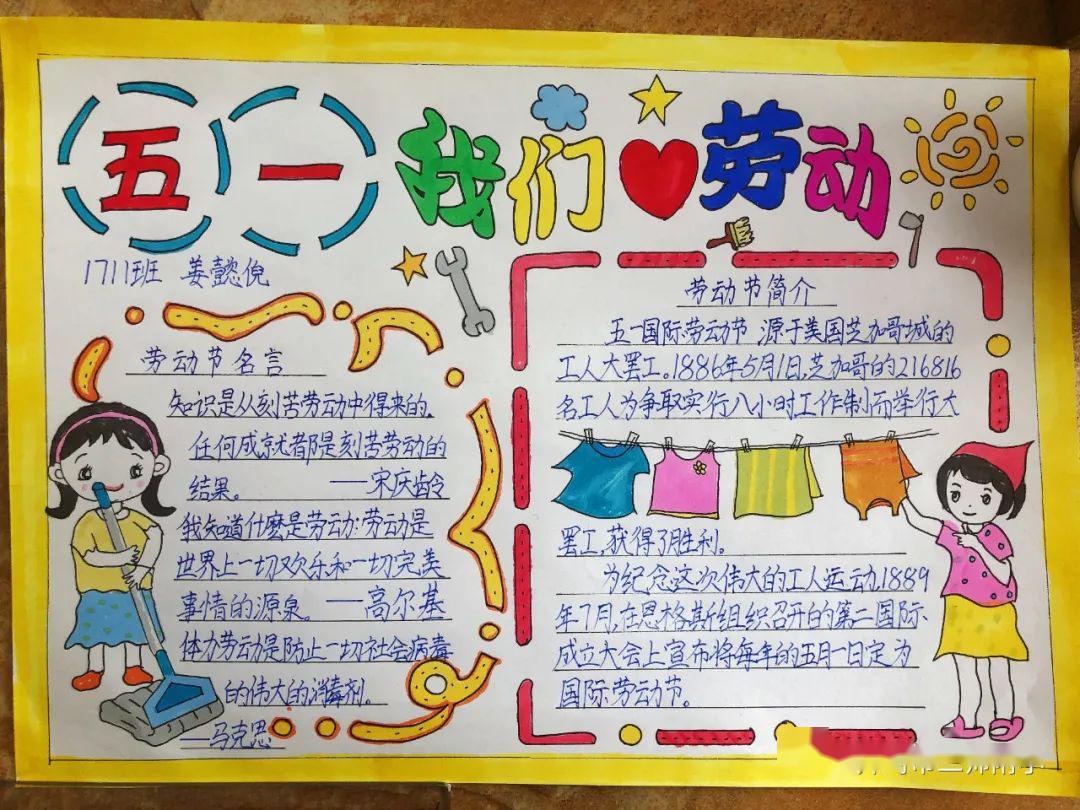 五一 我们 劳动
1711班 姜懿倪
劳动节名言
知识是从刻苦劳动中得来的,
任何成就者都是刻苦劳动的
结果。 ——宋庆龄
我知道什麽是劳动:劳动是
世界上一切欢乐和一切完美
事情的源泉。——高尔基
体力劳动是防止一切社会病毒
的伟大的消毒剂。
—马克思
劳动节简介
五一国际劳动节 源于美国芝加哥城的
工人大罢工。1886年5月1日,芝加哥的216816
名工人为争取实行八小时工作制而举行大
罢工,获得了胜利。
为纪念这次伟大的工人运动,1889
年7月,在恩格斯组织召开的第二国际
成立大会上宣布将每年的五月一日定为
国际劳动节。